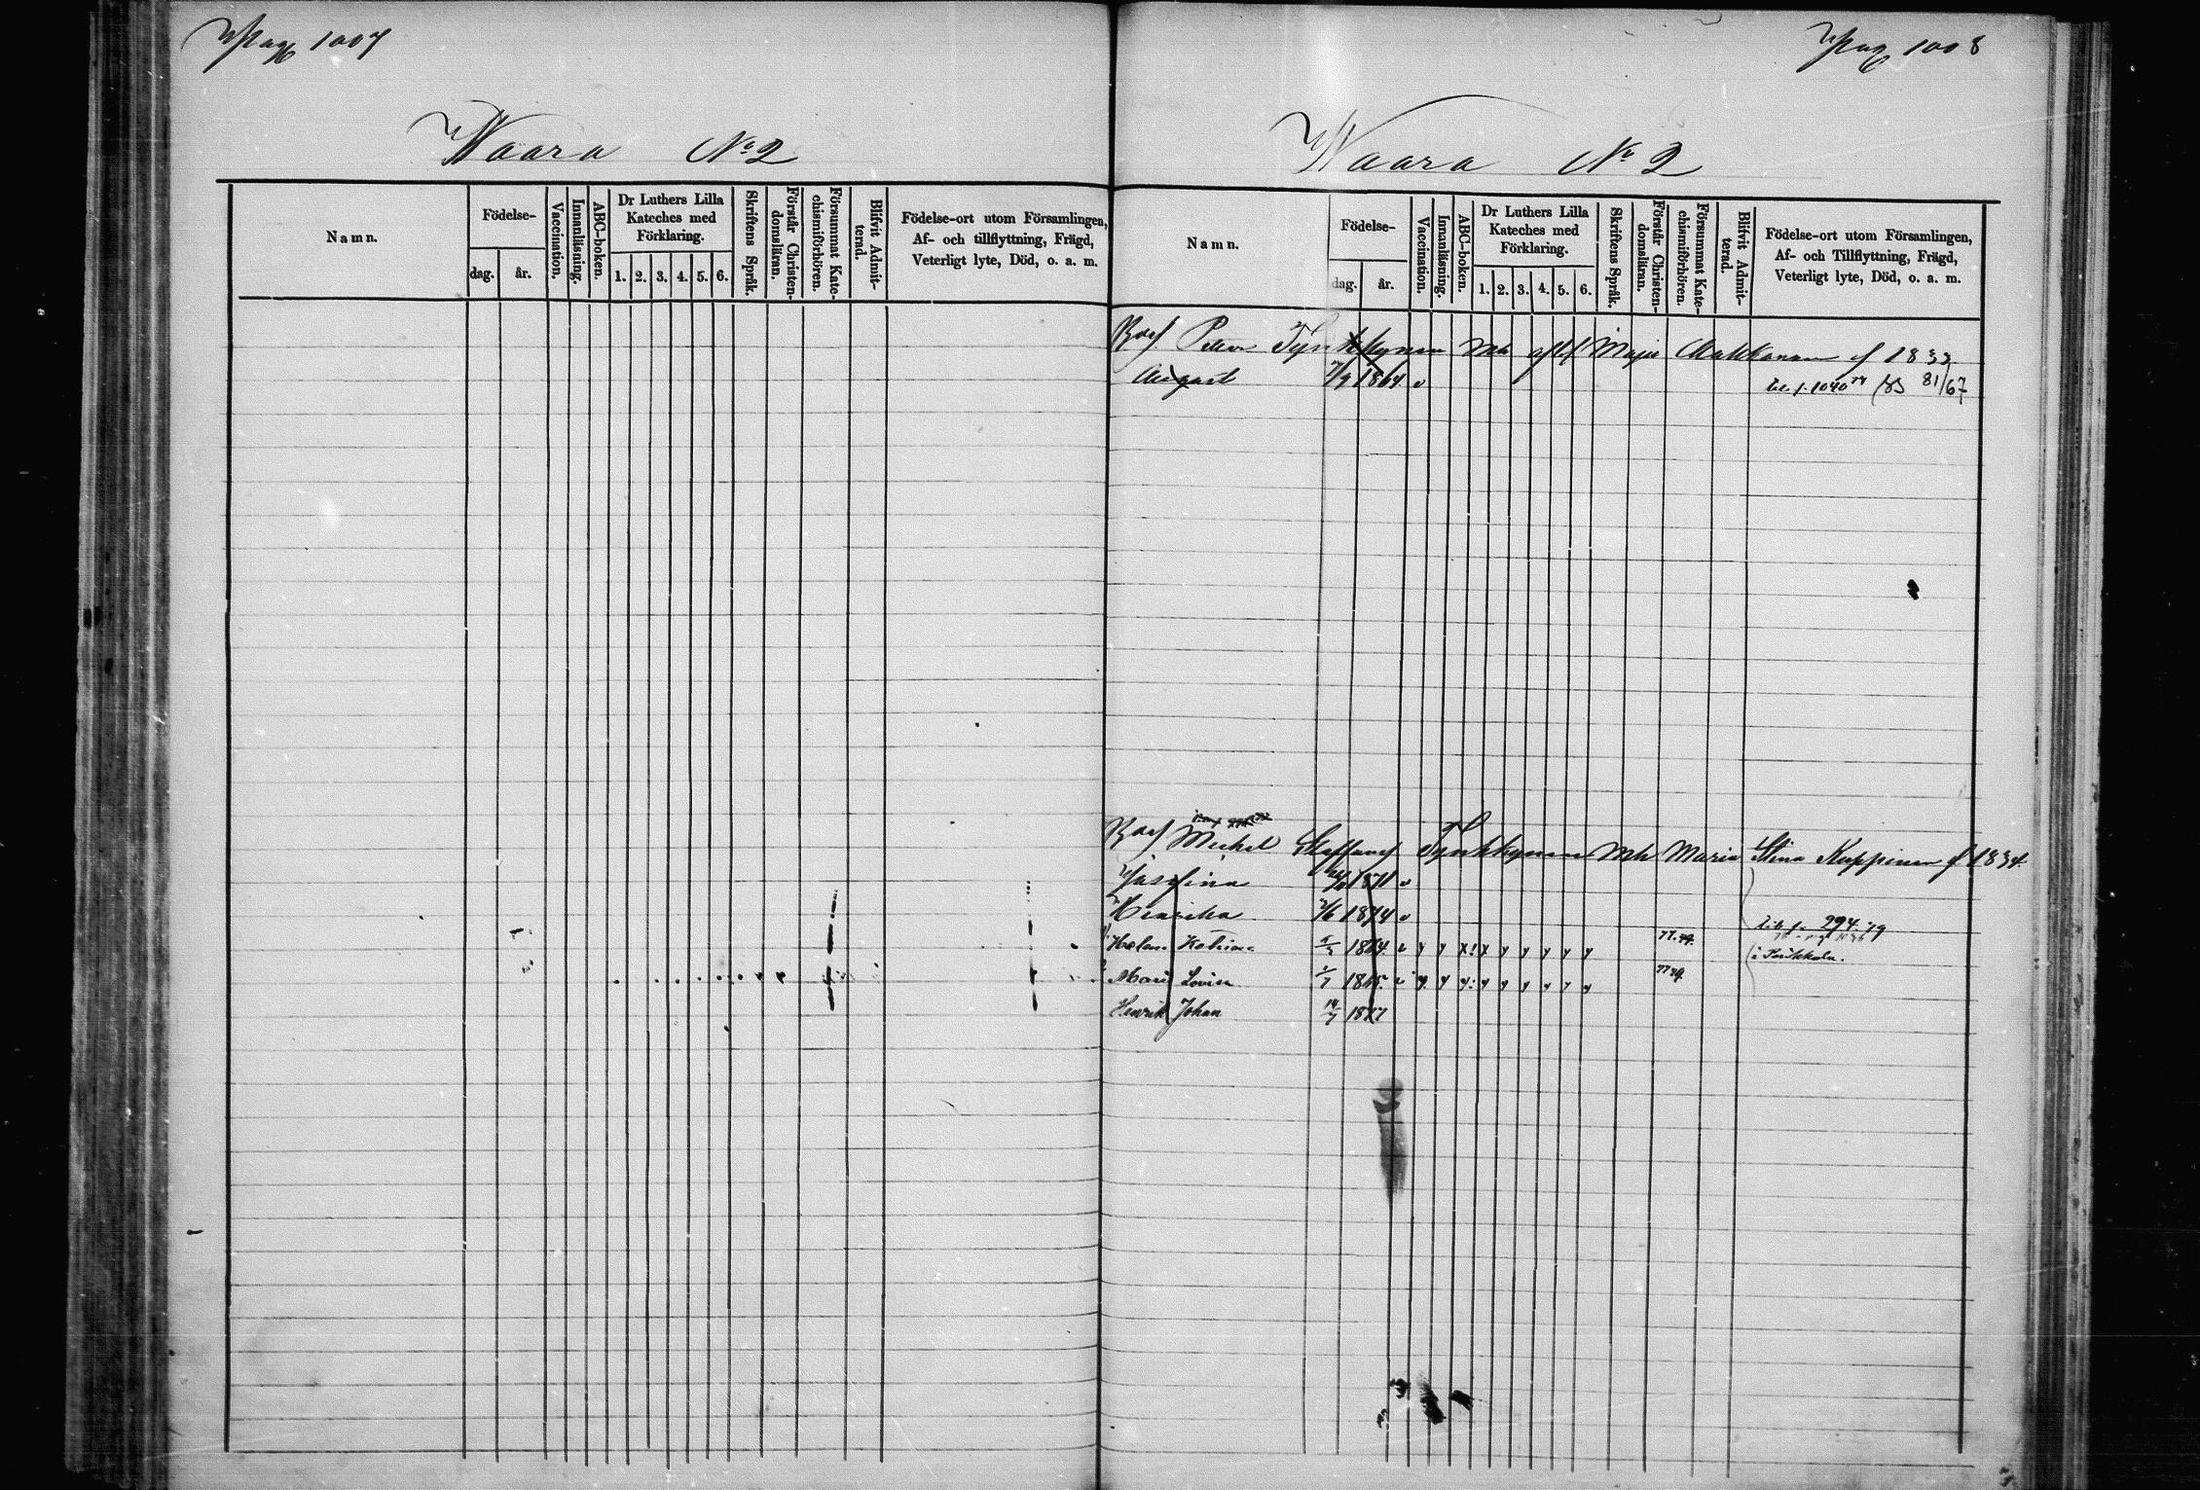 Pag 1007
Waara No 2
Namn.
Födelse-
dag.
år.
Vaccination.
Innanläsning.
ABC-boken.
Dr Luthers Lilla
Kateches med
Förklaring.
1. 2. 3. 4. 5. 6.
Skriftens Språk.
Förstår Christen-
domsläran.
Försummat Kate-
chismiförhören.
Blifvit Admit-
terad.
Födelse-ort utom Församlingen,
Af- och tillflyttning, Frägd,
Veterligt lyte, Död, o. a. m.
Pag 1008
Waara No 2
Namn.
Födelse-
dag.
år.
Vaccination.
Innanläsning.
ABC-boken.
Dr Luthers Lilla
Kateches med
Förklaring.
1. 2. 3. 4. 5. 6.
Skriftens Språk.
Förstår Christen-
domsläran.
Försummat Kate-
chismiförhören.
Blifvit Admit-
terad.
Födelse-ort utom Församlingen,
Af- och Tillflyttning, Frägd,
Veterligt lyte, Död, o. a. m.
Petter Tynkkynen Mh Maja f 1832
August 1864 v 81/67
Michel Staffansf Tynkkynen Mh Maria Stina Kuppinen f 1834
Josefina 1871 v
Henrika 1874 v 294. 79
Helena Katrina 1864 v y y x x y y y y y 77. 79. i Parikkala.
Maria Lovisa 1865 v y y y y y y y y y 77 79.
Henrik Johan 14/7 1877